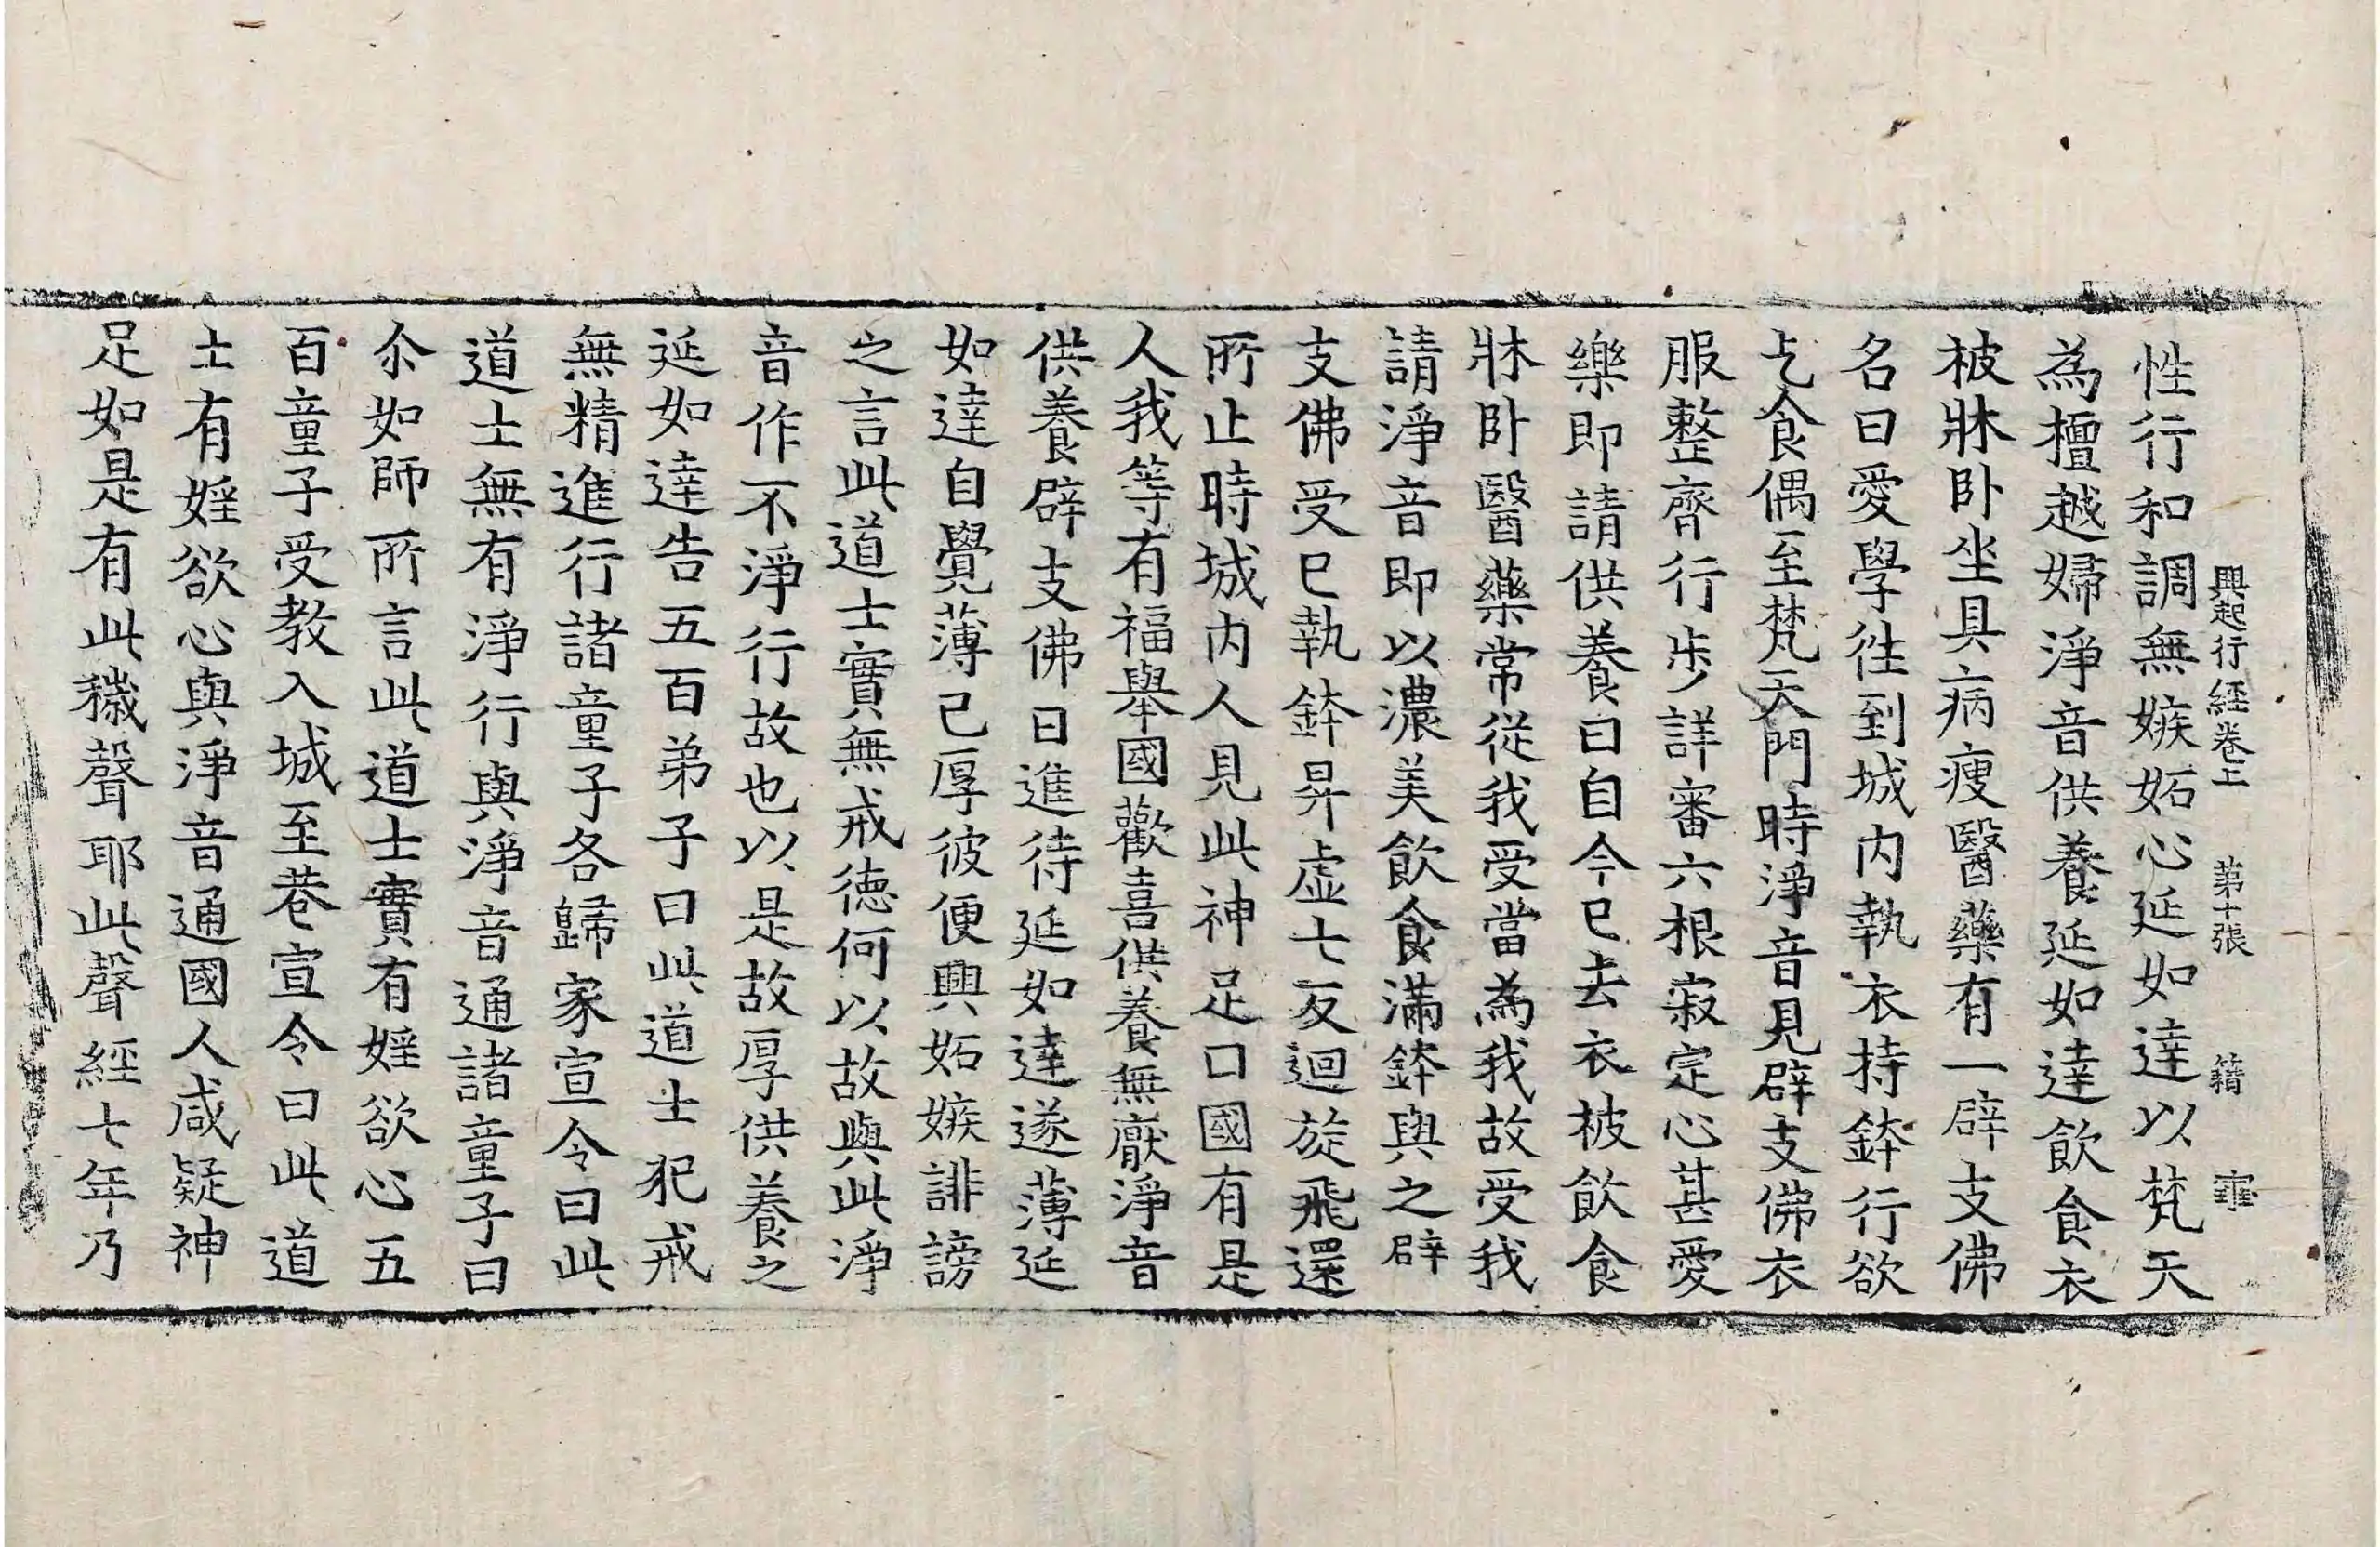 興起行經卷上 第十張 籍
性行和調無嫉妬心延如達以梵天
為檀越婦淨音供養延如達飲食衣
被牀卧坐具病瘦醫藥有一辟支佛
名曰愛學徃到城内執衣持鉢行欲
乞食偶至梵天門時淨音見辟支佛衣
服整齊行步詳審六根寂定心甚愛
樂即請供養曰自今已去衣被飲食
牀卧醫藥常從我受當為我故受我
請淨音即以濃美飲食滿鉢與之辟
支佛受已執鉢昇虛七反迴旋飛還
所止時城内人見此神足口國有是
人我等有福舉國歡喜供養無厭淨音
供養辟支佛日進待延如達遂薄延
如達自覺薄己厚彼便興妬嫉誹謗
之言此道士實無戒德何以故與此淨
音作不淨行故也以是故厚供養之
延如達告五百弟子曰此道士犯戒
無精進行諸童子各歸家宣令曰此
道士無有淨行與淨音通諸童子曰
尒如師所言此道士實有婬欲心五
百童子受教入城至巷宣令曰此道
士有婬欲心與淨音通國人咸疑神
足如是有此穢聲耶此聲經七年乃